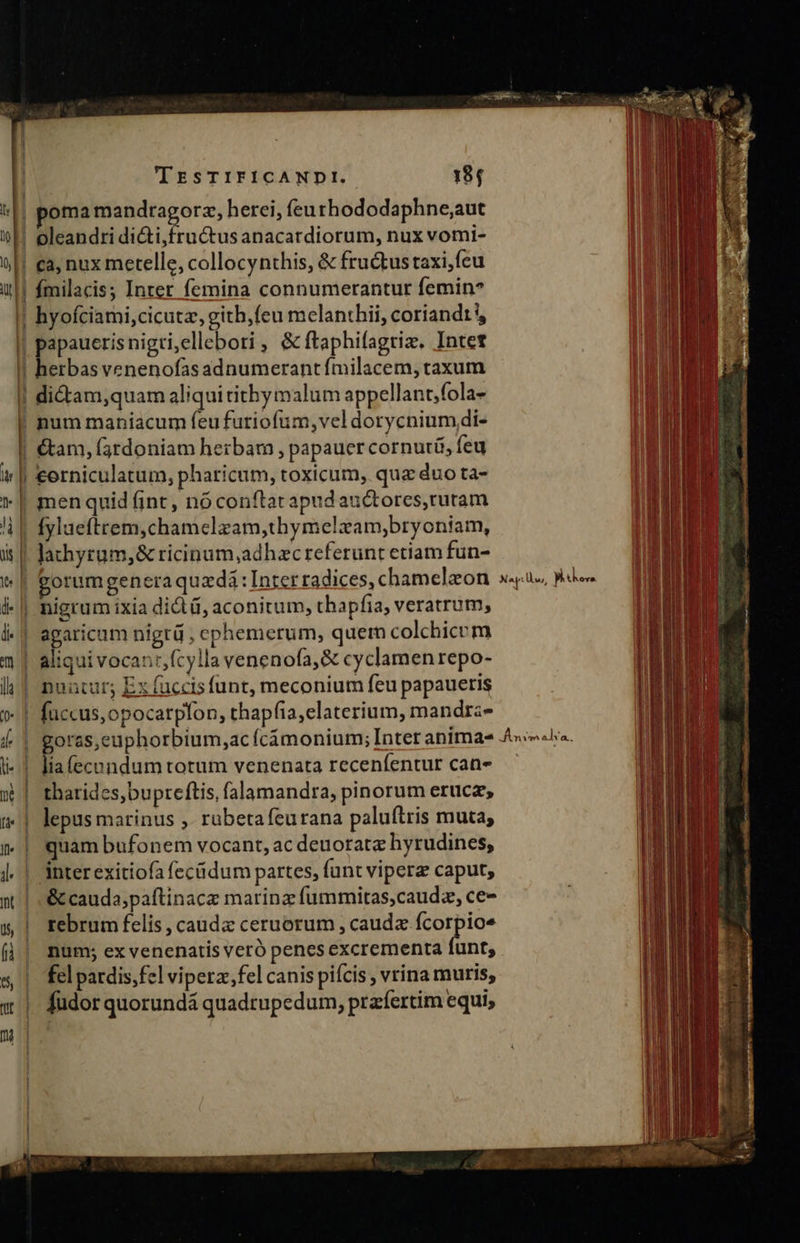 TESTIFICANDI. 185
poma mandragoræ, herei, ſeu rhododaphne, aut
oleandri dicti, fructus anacardiorum, nux vomi-
ca, nux metelle, collocynthis, & fructus taxi, ſeu
ſmilacis; Inter ſemina connumerantur ſemina
hyoſciami, cicutæ, gith, ſeu melanthii, coriandri,
papaueris nigri, ellebori, & ſtaphiſagriæ. Inter
herbas venenoſas adnumerant ſmilacem, taxum
dictam, quam aliqui tithymalum appellant, ſola-
num maniacum ſeu furioſum, vel dorycnium, di-
ctam, ſardoniam herbam, papauer cornutū, ſeu
corniculatum, pharicum, toxicum, quæ duo ta-
men quid ſint, nō conſtat apud auctores, rutam
ſylueſtrem, chamelæam, thymelæam, bryoniam,
lathyrum, & ricinum, adhæc referunt etiam fun-
gorum genera quædā: Inter radices, chamelæon
nigrum ixia dictū, aconitum, thapſia, veratrum,
agaricum nigrū, ephemerum, quem colchicum
aliqui vocant, ſcylla venenoſa, & cyclamen repo-
nuntur; Ex ſuccis ſunt, meconium ſeu papaueris
ſuccus, opocarpſon, thapſia, elaterium, mandra-
goras, euphorbium, ac ſcāmonium; Inter anima- Animalia.
lia ſecundum totum venenata recenſentur can-
tharides, bupreſtis, ſalamandra, pinorum erucæ,
lepus marinus, rubeta ſeu rana paluſtris muta,
quam bufonem vocant, ac deuoratæ hyrudines,
inter exitioſa ſecūdum partes, ſunt viperæ caput,
& cauda, paſtinacæ marinæ ſummitas, caudæ, ce-
rebrum felis, caudæ ceruorum, caudæ ſcorpio-
num; ex venenatis verò penes excrementa ſunt,
fel pardis, fel viperæ, fel canis piſcis, vrina muris,
ſudor quorundā quadrupedum, præſertim equi,